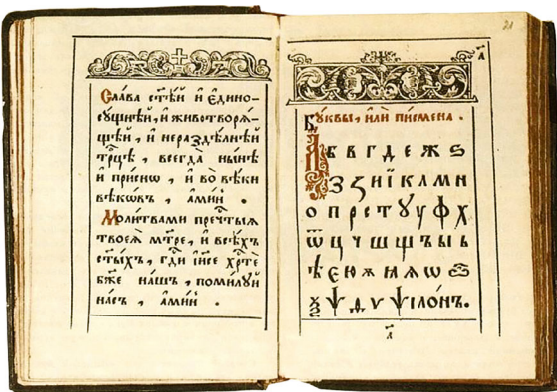 Сла́ва ст҃ѣ́й и҆ є҆ди́но-
сꙋ́щнѣй, и҆ животворѧ́-
щей, и҆ нераздѣ́лнѣй
трⷪ҇цѣ, всегда̀ ны́нѣ
и҆ при́снѡ, и҆ во вѣ́ки
вѣкѡ́въ, а҆ми́нь .
Моли́твами пречⷭ҇тыѧ
твоеѧ̀ мт҃ре, и҆ всѣ́хъ
ст҃ы́хъ, гдⷭ҇и і҆и҃се хрⷭ҇тѐ
бж҃е на́шъ, поми́лꙋй
на́съ, а҆ми́нь .
21
а҃
Бꙋ́квы, и҆лѝ пи́смена .
А Б В Г Д Е Ж Ѕ
З Ꙁ И Ї К Л М Н
О П Р С Т Ȣ Ꙋ Ф Х
Ѿ Ц Ч Ш Щ Ъ Ы Ь
Ѣ Є Ю Ѫ Ꙗ Ѧ Ѡ Ѽ
Ѯ Ѱ Ѳ Ѵ ѰІЛО́НЪ.
а҃